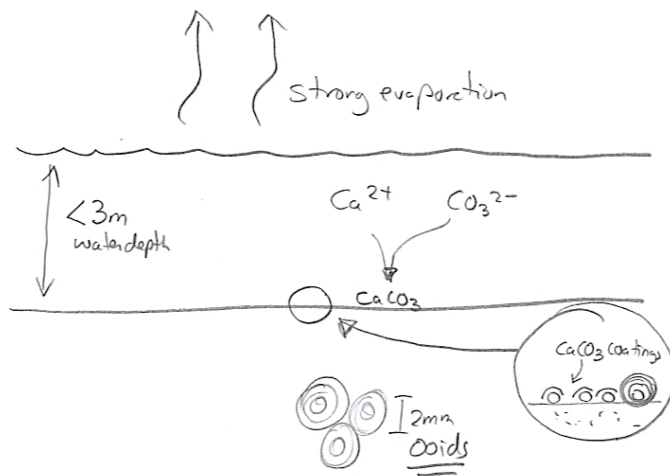 strong evaporation
<3m
waterdepth
Ca²⁺ CO₃²⁻
CaCO₃
CaCO₃ coatings
2mm
Ooids